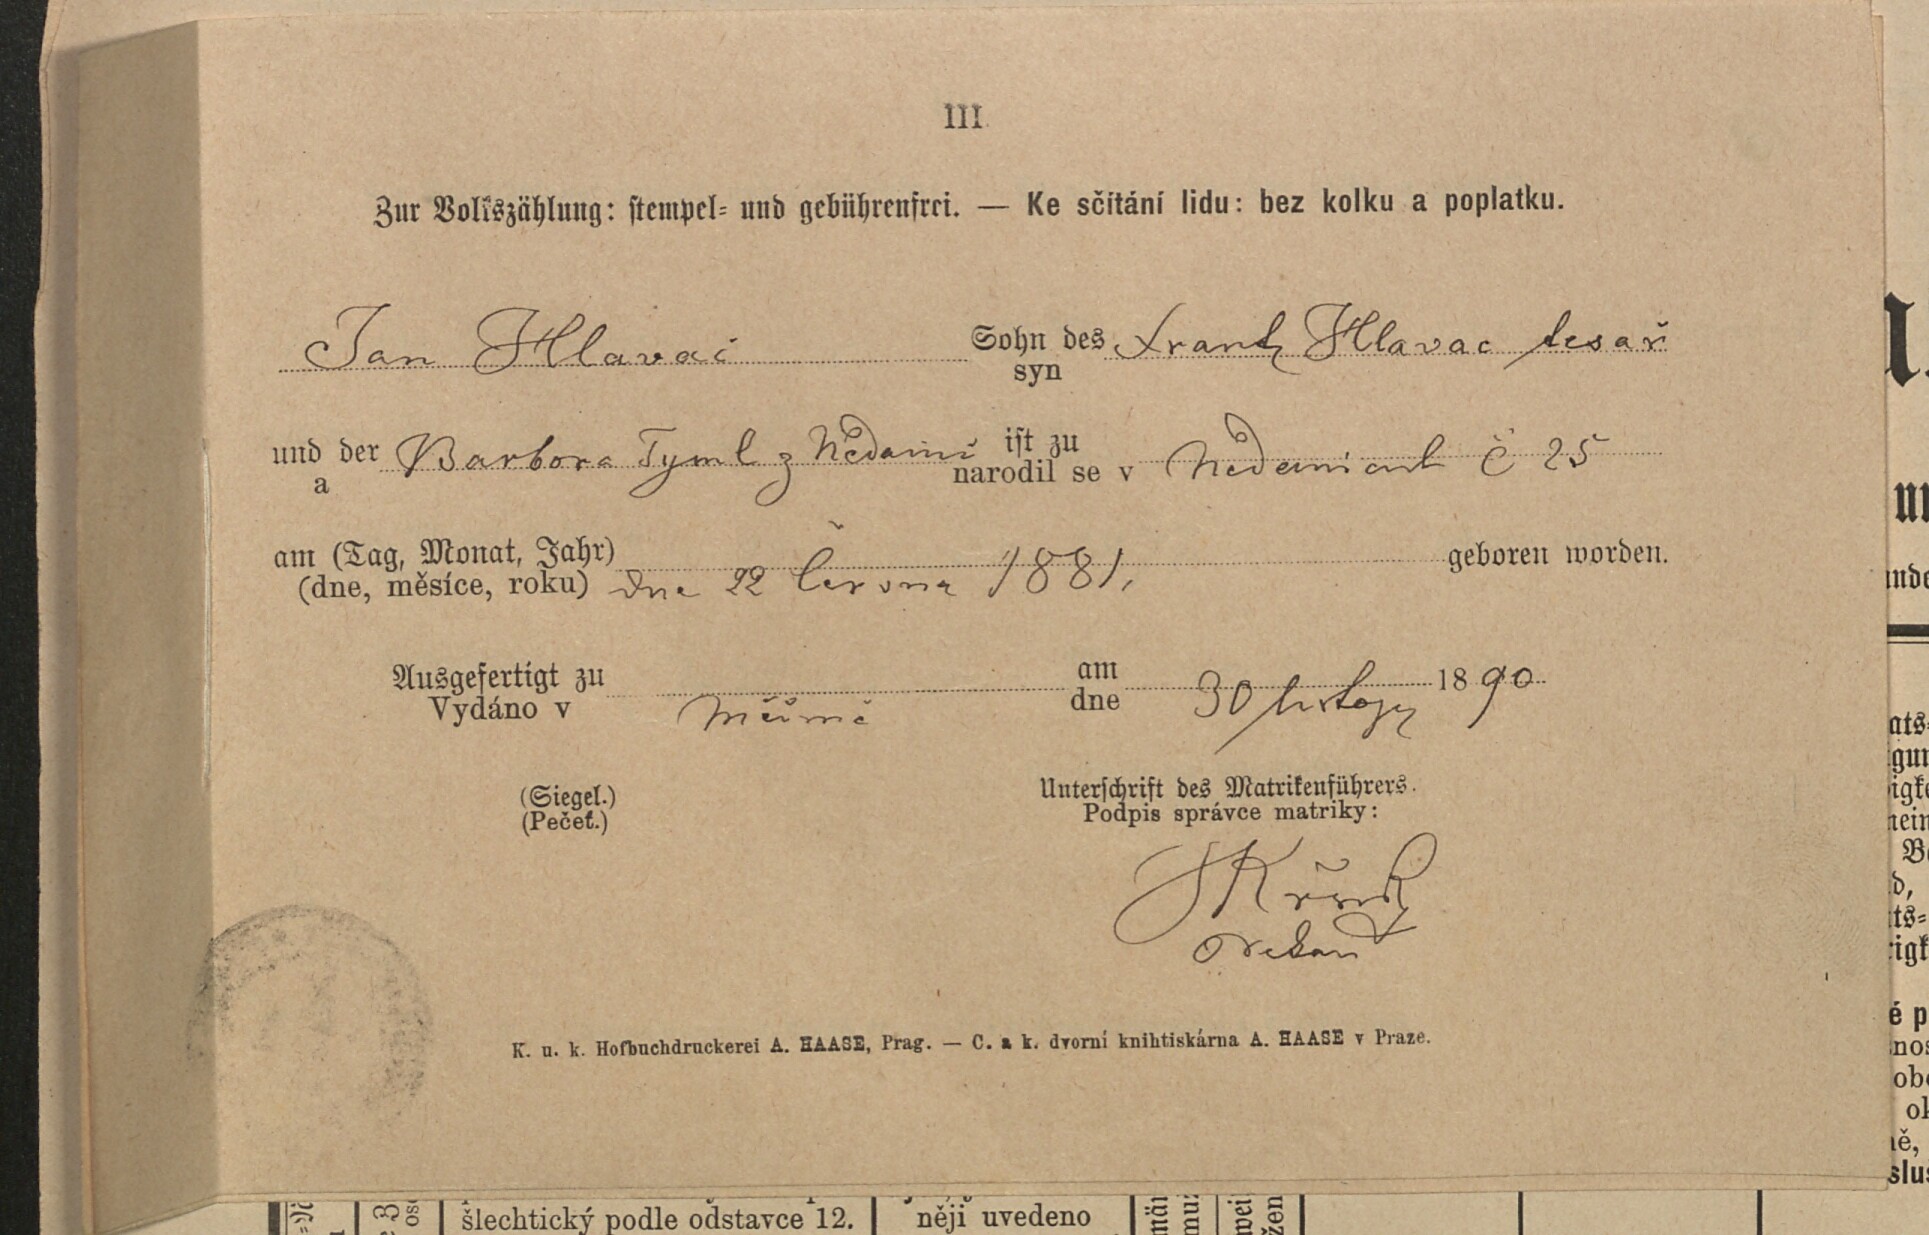 III
Zur Volkszählung: stempel- und gebührenfrei. — Ke sčítání lidu: bez kolku a poplatku.
Jan Hlavač Sohn des Frant Hlavac tesař
syn
und der Barbora Tyml z ist zu
a narodil se v č 25
am (Tag, Monat, Jahr) geboren worden.
(dne, měsíce, roku) dne 22 června 1881,
Ausgefertigt zu am
Vydáno v dne 30 listop 1890
(Siegel.) Unterschrift des Matrikenführers.
(Pečeť.) Podpis správce matriky:
Děkan
K. u. k. Hofbuchdruckerei A. HAASE, Prag. — C. a k. dvorní knihtiskárna A. HAASE v Praze.
šlechtický podle odstavce 12. něji uvedeno